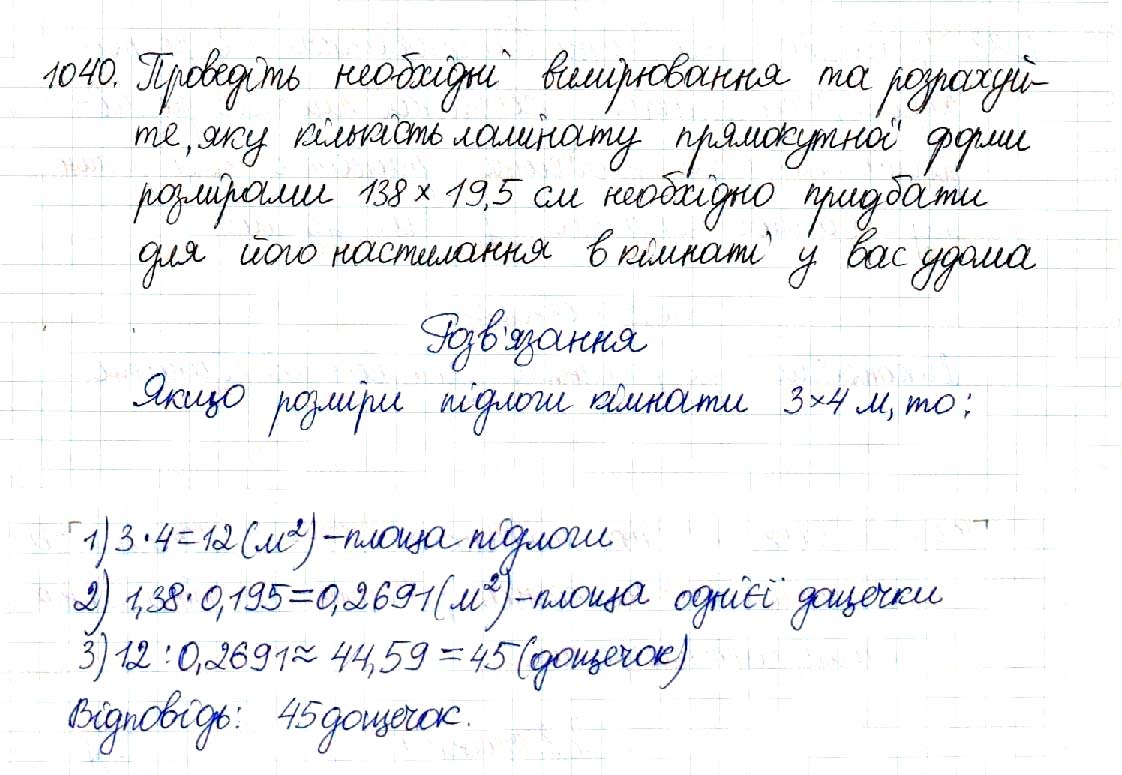 1040. Проведіть необхідні вимірювання та розрахуй-
те, яку кількість ламінату прямокутної форми
розмірами 138 × 19,5 см необхідно придбати
для його настилання в кімнаті у вас удома
Розв'язання
Якщо розміри підлоги кімнати 3×4 м, то:
1) 3·4=12(м²)-площа підлоги
2) 1,38·0,195=0,2691(м²)-площа однієї дощечки
3) 12:0,2691≈ 44,59 = 45(дощечок)
Відповідь: 45 дощечок.